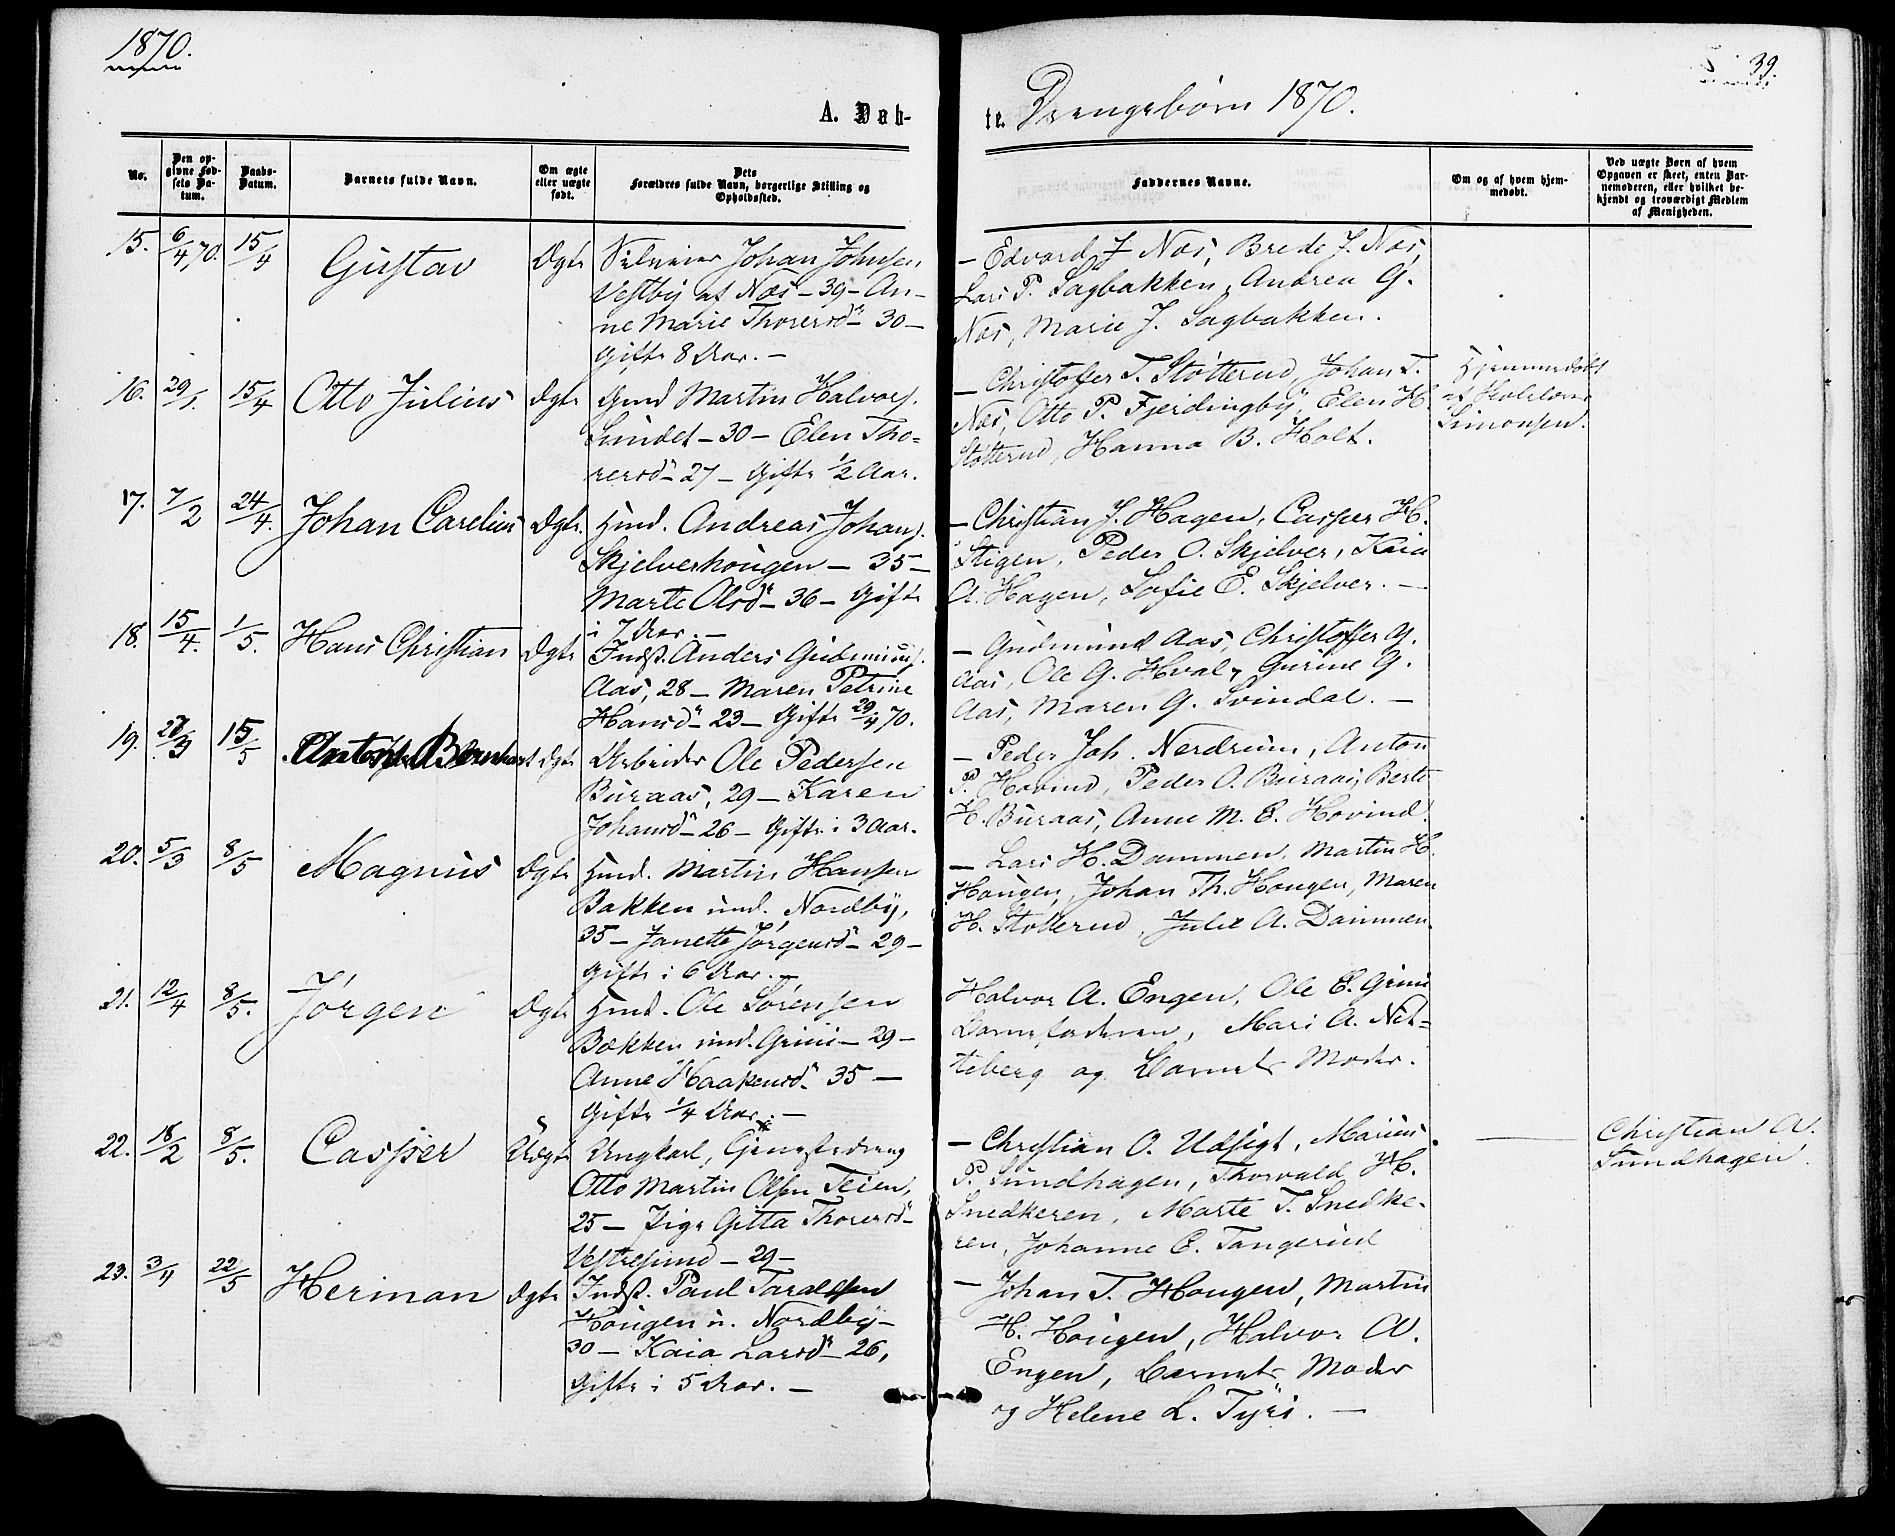 1870.
39
A. Døb-
te. Drengebørn 1870.
No.
Den op-
givne Fød-
sels Da-
tum.
Daabs-
Datum.
Barnets fulde Navn.
Om ægte
eller uægte
født.
Dets
Forældres fulde Navn, borgerlige Stilling og
Opholdssted.
Faddernes Navne.
Om og af hvem hjem-
medøbt.
Ved uægte Børn af hvem
Opgaven er skeet, enten Bar-
nemoderen, eller hvilket be-
kjendt og troværdigt Medlem
af Menigheden.
15. 6/4 70. 15/4 Gustav Ægte Selveier Johan Johnsen
Vestby af Næs - 39 - An-
ne Marie Thorersd - 30 -
Gifte 8 Aar. -
- Edvard J Næs, Brede J. Næs,
Lars P. Sagbakken, Andrea G.
Næs, Marie J. Sagbakken.
16. 29/1. 15/4 Otto Julius Ægte Gmd Martin Halvors.
Sundet - 30 - Elen Tho-
rersd - 27 - Gifte 1/2 Aar.
- Christoffer T. Støtterud, Johan T.
Næs, Otto P. Fjerdingby, Elen H.
Støtterud, Hanna B. Holt.
Hjemmedøbt
af Skolelærer
Simonsen.
17. 7/2 24/4. Johan Carelius Ægte. Hmd. Andreas Johans.
Skjelverhougen - 35 -
Marte Olsd - 36 - Gifte
i 7 Aar. -
- Christian J. Hagen, Casper H.
Stigen, Peder O. Skjelver, Kaia
A. Hagen, Sofie E. Skjelver. -
18. 15/4. 1/5. Hans Christian Ægte Indst. Anders Gudmunds.
Aas, 28 - Maren Petrine
Hansd - 23 - Gifte 29/4 70.
- Gudmund Aas, Christoffer G.
Aas, Ole G. Hval, Gurine G.
Aas, Maren G. Svindal. -
19. 15/5 Bernhart Ægte Arbeider Ole Pedersen
Buraas, 29 - Karen
Johansd - 26 - Gifte i 3 Aar.
- Peder Joh. Nerdrum, Anton
P. Hovind, Peder O. Buraas, Berte
H. Buraas, Anne M. E. Hovind.
20. 5/3 8/5 Magnus Ægte Hmd. Martin Hansen
Bakken und. Nordby,
35 - Janette Jørgensd - 29 -
Gifte i 6 Aar. -
- Lars H. Dammen, Martin H.
Hougen, Johan Th. Hougen, Maren
H. Støtterud, Julie A. Dammen.
21. 12/4 8/5. Jørgen Ægte Hmd. Ole Sørensen
Bækken und. Grini - 29 -
Anne Haakensd - 35 -
Gifte 1/4 Aar. -
Halvor A. Engen, Ole E. Grini
Barnefaderen, Mari A. Net-
teberg og Barnets Moder.
22. 18/2 8/5. Casper Uægte Ungkarl, Tjenestedreng
Otto Martin Olsen Teien,
25 - Pige Gitta Thorersd
Vestresund - 29 -
- Christian O. Udsigt, Marius
P. Sundhagen, Thorvald H.
Snedkeren, Marte T. Snedke-
ren, Johanne E. Tangerud
Christian A.
Sundhagen.
23. 3/4 22/5 Herman Ægte Indst. Paul Taraldsen
Hougen u. Nordby -
30 - Kaia Larsd - 26,
Gifte i 5 Aar. -
- Johan T. Hougen, Martin
H. Hougen, Halvor A.
Engen, Barnets Moder
og Helene L. Tyri. -